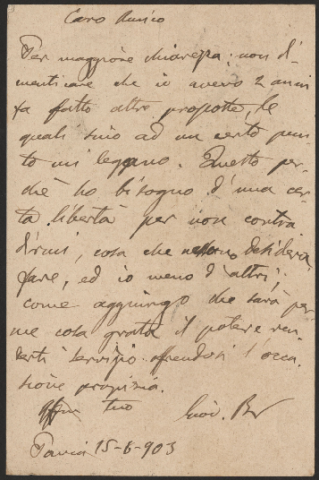 Caro Amico
Per maggiore chiarezza: non di-
menticare che io avevo 2 anni
fa fatto altre proposte, le
quali sino ad un certo pun-
to mi legano. Questo per-
chè ho bisogno d'una cer-
ta libertà per non contra
dirmi, cosa che nessuno desidera
fare, ed io meno d'altri;
come aggiungo che sarà per
me cosa grata il potere ren-
derti servizio offrendosi l'occa
sione propizia.
tuo Giov.
Pavia 15-6-903